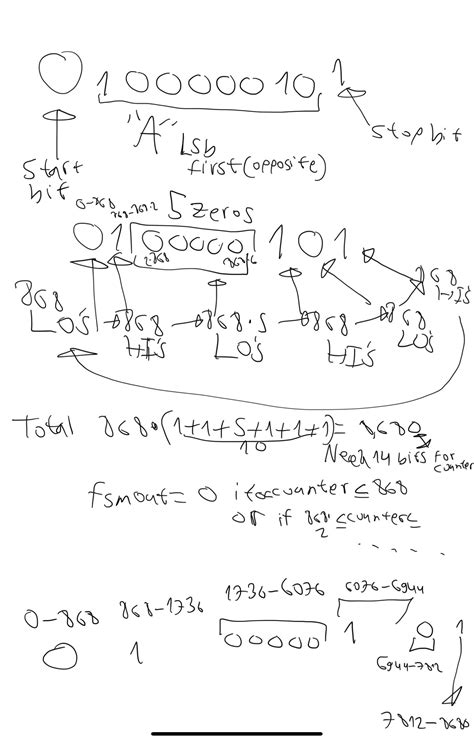 0 10000010 1
"A" Lsb
first (opposite)
Start
bit
Stop bit
0-868 868-868·2
5 zeros
0 1 00000 1 0 1
2·868 868·6
868 LO's
868 HI's
868·5 LO's
868 HI's
868 LO's
868 HI's
Total 868·(1+1+5+1+1+1)= 8,680
10
Need 14 bits for
counter
fsmout= 0 if 0≤counter≤868
or if 868·2 ≤counter≤
.....
0-868 868-1736 1736-6076 6076-6944
0 1 00000 1 0 1
6944-7812
7812-8680